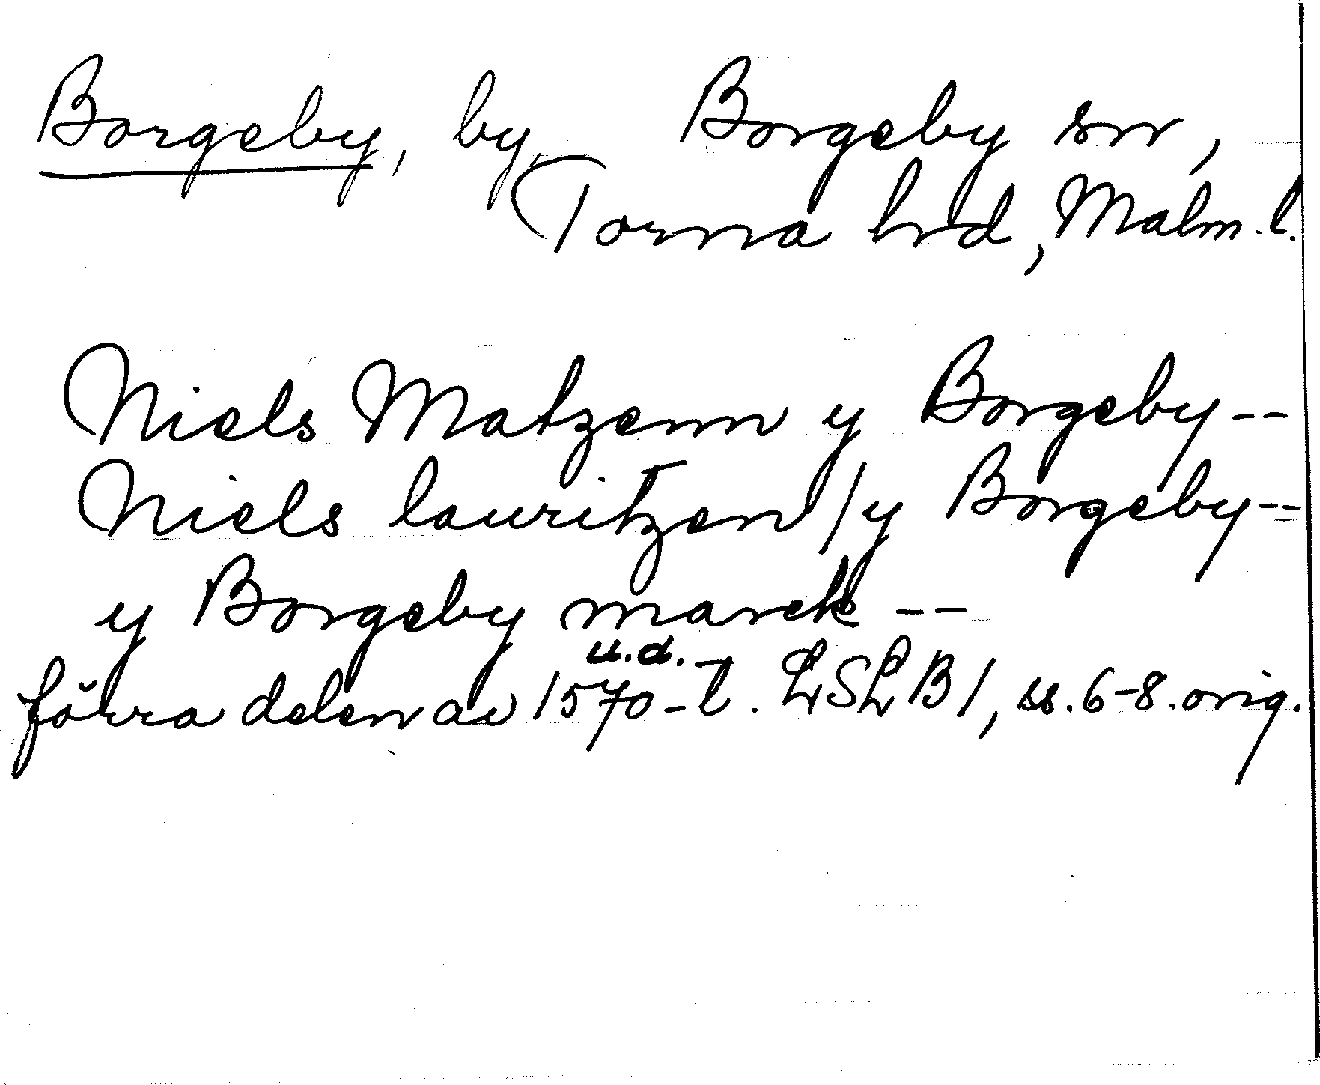 Borgeby, by Borgeby sn,
Torna hd, Malm.l.
Niels Matzenn y Borgeby --
Niels lauritzen / y Borgeby --
y Borgeby marck --
u.d.
förra delen av 1570-t. LSLB1, ss. 6-8. orig.